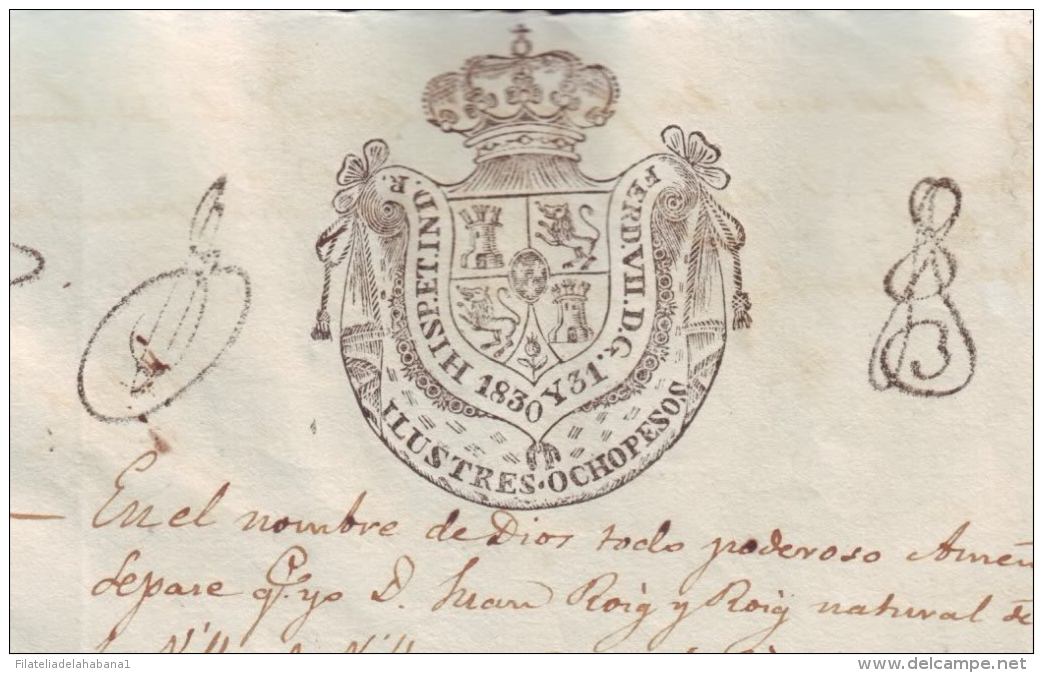 FERD.VII.D.G.HISP.ET.IND.R.
1830 Y 31
ILUSTRES·OCHOPESOS
En el nombre de Dios todo poderoso Amen
Sepase q.e yo D. Juan Roig y Roig natural de
Filateliadelahabana1
www.delcampe.net